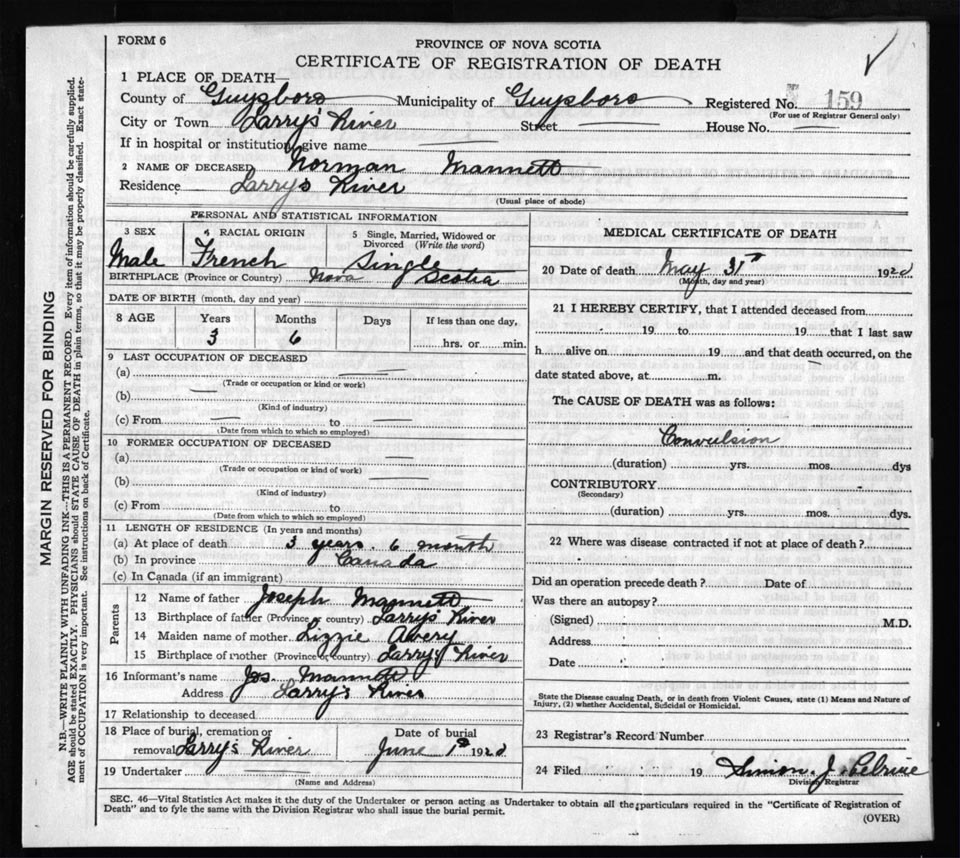 FORM 6
PROVINCE OF NOVA SCOTIA
CERTIFICATE OF REGISTRATION OF DEATH
1 PLACE OF DEATH—
County of Guysboro Municipality of Guysboro Registered No. 159
(For use of Registrar General only)
City or Town Larry's River Street House No.
If in hospital or institution, give name
2 NAME OF DECEASED Norman Mannett
Residence Larry's River
(Usual place of abode)
PERSONAL AND STATISTICAL INFORMATION
3 SEX 4 RACIAL ORIGIN 5 Single, Married, Widowed or Divorced (Write the word)
Male French Single
BIRTHPLACE (Province or Country) Nova Scotia
DATE OF BIRTH (month, day and year)
8 AGE Years Months Days If less than one day,
3 6 hrs. or min.
9 LAST OCCUPATION OF DECEASED
(a)
(Trade or occupation or kind or work)
(b)
(Kind of industry)
(c) From to
(Date from which to which so employed)
10 FORMER OCCUPATION OF DECEASED
(a)
(Trade or occupation or kind of work)
(b)
(Kind of industry)
(c) From to
(Date from which to which so employed)
11 LENGTH OF RESIDENCE (In years and months)
(a) At place of death 3 years. 6 month
(b) In province Canada
(c) In Canada (if an immigrant)
Parents
12 Name of father Joseph Mannett
13 Birthplace of father (Province or country) Larry's River
14 Maiden name of mother Lizzie Avery
15 Birthplace of mother (Province or Country) Larry's River
16 Informant's name Jos. Mannett
Address Larry's River
17 Relationship to deceased
18 Place of burial, cremation or removal Larry's River Date of burial June 1st 192
19 Undertaker
(Name and Address)
MEDICAL CERTIFICATE OF DEATH
20 Date of death May 31st 192
(Month, day and year)
21 I HEREBY CERTIFY, that I attended deceased from
19 to 19 that I last saw
h alive on 19 and that death occurred, on the
date stated above, at m.
The CAUSE OF DEATH was as follows:
Convulsion
(duration) yrs. mos. dys
CONTRIBUTORY
(Secondary)
(duration) yrs. mos. dys.
22 Where was disease contracted if not at place of death?
Did an operation precede death? Date of
Was there an autopsy?
(Signed) M.D.
Address
Date
State the Disease causing Death, or in death from Violent Causes, state (1) Means and Nature of
Injury, (2) whether Accidental, Suicidal or Homicidal.
23 Registrar's Record Number
24 Filed 19 Simon. J. Pelrine
Division Registrar
SEC. 46—Vital Statistics Act makes it the duty of the Undertaker or person acting as Undertaker to obtain all the particulars required in the "Certificate of Registration of
Death" and to fyle the same with the Division Registrar who shall issue the burial permit.
(OVER)
MARGIN RESERVED FOR BINDING
N.B.—WRITE PLAINLY WITH UNFADING INK—THIS IS A PERMANENT RECORD. Every item of information should be carefully supplied.
AGE should be stated EXACTLY. PHYSICIANS should STATE CAUSE OF DEATH in plain terms, so that it may be properly classified. Exact state-
ment of OCCUPATION is very important. See instructions on back of Certificate.